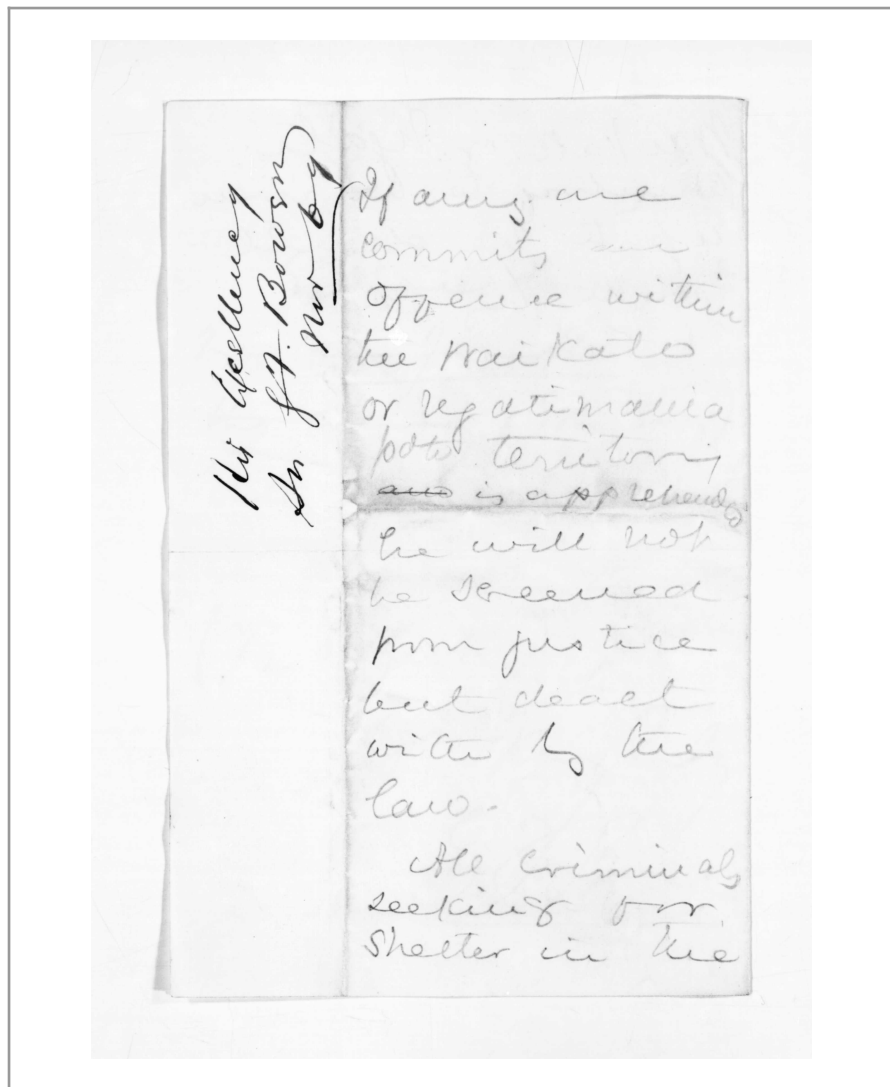 His Excellency
Sir G F. Bowen
If any one
commits an
offence within
the Waikato
or Ngatimania
poto territory
is apprehended
he will not
be screened
from justice
but dealt
with by the
law.
All criminals
seeking for
shelter in the